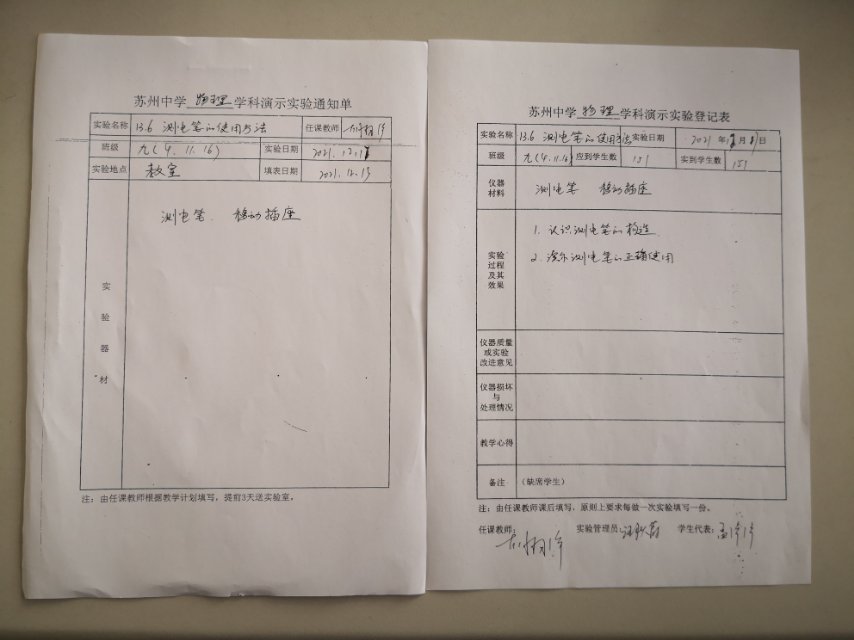 苏州中学 物理 学科演示实验通知单
实验名称 13.6 测电笔的使用方法 任课教师
班级 九(4.11.16) 实验日期 2021.12.1
实验地点 教室 填表日期 2021.12.13
测电笔. 移动插座
实
验
器
材
注:由任课教师根据教学计划填写,提前3天送实验室。
苏州中学 物理 学科演示实验登记表
实验名称 13.6 测电笔的使用方法 实验日期 2021 年 月 日
班级 九(4.11.16) 应到学生数 151 实到学生数 151
仪器
材料
测电笔 移动插座
实验
过程
及其
效果
1. 认识测电笔的构造.
2. 演示测电笔的正确使用
仪器质量
或实验
改进意见
仪器损坏
与
处理情况
教学心得
备注 (缺席学生)
注:由任课教师课后填写、原则上要求每做一次实验填写一份。
任课教师: 实验管理员: 学生代表: